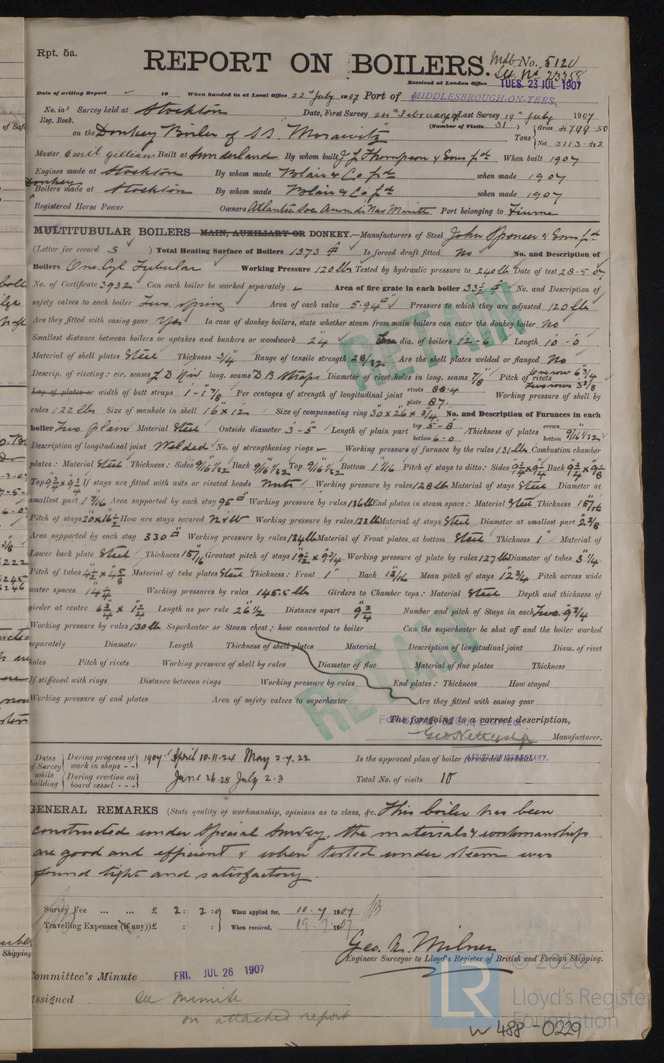 Rpt. 5a.
REPORT ON BOILERS.
Mdb No. 5120
Received at London Office TUES. 23 JUL 1907
Date of writing Report 19 When handed in at Local Office 22nd July 1907 Port of MIDDLESBROUGH-ON-TEES.
No. in Survey held at Stockton Date, First Survey February Last Survey 19th July 1907
Reg. Book.
(Number of Visits 31)
on the Donkey Boiler of S.S. Morawitz Tons Gross 4799.50 Net 3113.42
Master Emil Built at Sunderland By whom built J. L. Thompson & Sons Ld When built 1907
Engines made at Stockton By whom made Blair & Co Ld when made 1907
Donkey
Boilers made at Stockton By whom made Blair & Co Ld when made 1907
Registered Horse Power Owners Port belonging to Fiume
MULTITUBULAR BOILERS MAIN, AUXILIARY OR DONKEY.—Manufacturers of Steel John Spencer & Sons Ld
(Letter for record S) Total Heating Surface of Boilers 1373 Is forced draft fitted No No. and Description of
Boilers One Cyl Tubular Working Pressure 120 lbs Tested by hydraulic pressure to 240 lbs Date of test 28-5-07
No. of Certificate 3932 Can each boiler be worked separately Area of fire grate in each boiler 33½ No. and Description of
safety valves to each boiler Two spring Area of each valve 5.94 Pressure to which they are adjusted 120 lbs
Are they fitted with easing gear Yes In case of donkey boilers, state whether steam from main boilers can enter the donkey boiler No
Smallest distance between boilers or uptakes and bunkers or woodwork 24 dia. of boilers 12-6 Length 10-0
Material of shell plates Steel Thickness 3/4 Range of tensile strength 28/32 Are the shell plates welded or flanged No
Descrip. of riveting: cir. seams L D Riv long. seams D B Straps Diameter of rivet holes in long. seams 7/8 Pitch of rivets
Lap of plates or width of butt straps 1-1 7/8 Per centages of strength of longitudinal joint rivets 88.4 plate 87 Working pressure of shell by
rules 122 lbs Size of manhole in shell 16 x 12 Size of compensating ring 30 x 26 x 3/4 No. and Description of Furnaces in each
boiler Two plain Material Steel Outside diameter 3-5 Length of plain part top 5-8 bottom 6-0 Thickness of plates crown bottom
Description of longitudinal joint Welded No. of strengthening rings Working pressure of furnace by the rules 131 lbs Combustion chamber
plates: Material Steel Thickness: Sides Back Top Bottom 1 1/16 Pitch of stays to ditto: Sides Back
Top If stays are fitted with nuts or riveted heads Nuts Working pressure by rules 128 lbs Material of stays Steel Diameter at
smallest part Area supported by each stay 95 Working pressure by rules 136 lbs End plates in steam space: Material Steel Thickness 15/16
Pitch of stays 20 x 16½ How are stays secured N & W Working pressure by rules Material of stays Steel Diameter at smallest part 2 3/8
Area supported by each stay 330 Working pressure by rules 124 lbs Material of Front plates at bottom Steel Thickness 1 Material of
Lower back plate Steel Thickness 15/16 Greatest pitch of stays Working pressure of plate by rules 127 lbs Diameter of tubes 3 1/4
Pitch of tubes Material of tube plates Steel Thickness: Front 1 Back 13/16 Mean pitch of stays 12 3/4 Pitch across wide
water spaces Working pressures by rules 145.5 lbs Girders to Chamber tops: Material Steel Depth and thickness of
girder at centre Length as per rule 26½ Distance apart 9 3/4 Number and pitch of Stays in each Two 9 3/4
Working pressure by rules 130 lbs Superheater or Steam chest; how connected to boiler Can the superheater be shut off and the boiler worked
separately Diameter Length Thickness of shell plates Material Description of longitudinal joint Diam. of rivet
holes Pitch of rivets Working pressure of shell by rules Diameter of flue Material of flue plates Thickness
If stiffened with rings Distance between rings Working pressure by rules End plates: Thickness How stayed
Working pressure of end plates Area of safety valves to superheater Are they fitted with easing gear
RETAIN
RETAIN
The foregoing is a correct description,
Manufacturer.
SECRETARY.
Dates of Survey while building During progress of work in shops - - 1907 April 10.11.24 May 2.7.22
During erection on board vessel - - - June 26.28 July 2.3
Is the approved plan of boiler forwarded herewith
Total No. of visits 10
GENERAL REMARKS (State quality of workmanship, opinions as to class, &c. This boiler has been
constructed under Special Survey. The materials & workmanship
are good and efficient & when tested under steam was
found tight and satisfactory.
Survey Fee ... ... £ 2 : 2 : 0 When applied for, 10.7.1907
Travelling Expenses (if any) £ : : When received, 19.7.1907
Geo. A. Milner
Engineer Surveyor to Lloyd's Register of British and Foreign Shipping.
Committee's Minute FRI. JUL 26 1907
Assigned See Minute
on attached report
© 2020
LR
Lloyd's Register
Foundation
W488-0229